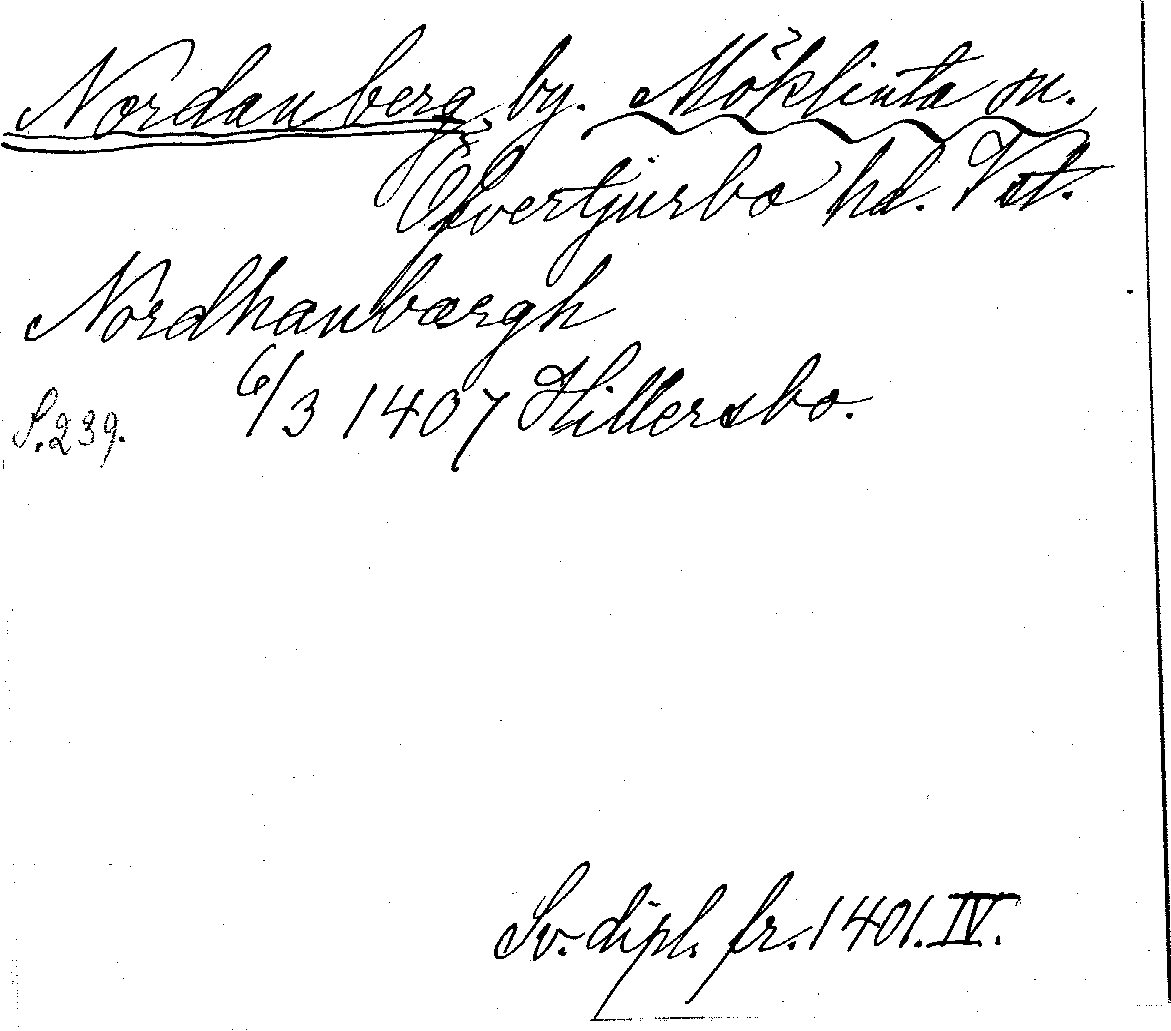 Nordanberg, by. Möklinta sn.
Öfvertjurbo hd. Vst.
Nordhanbærgh
6/3 1407 Hillersbo.
S.239.
Sv. dipl. fr. 1401. IV.